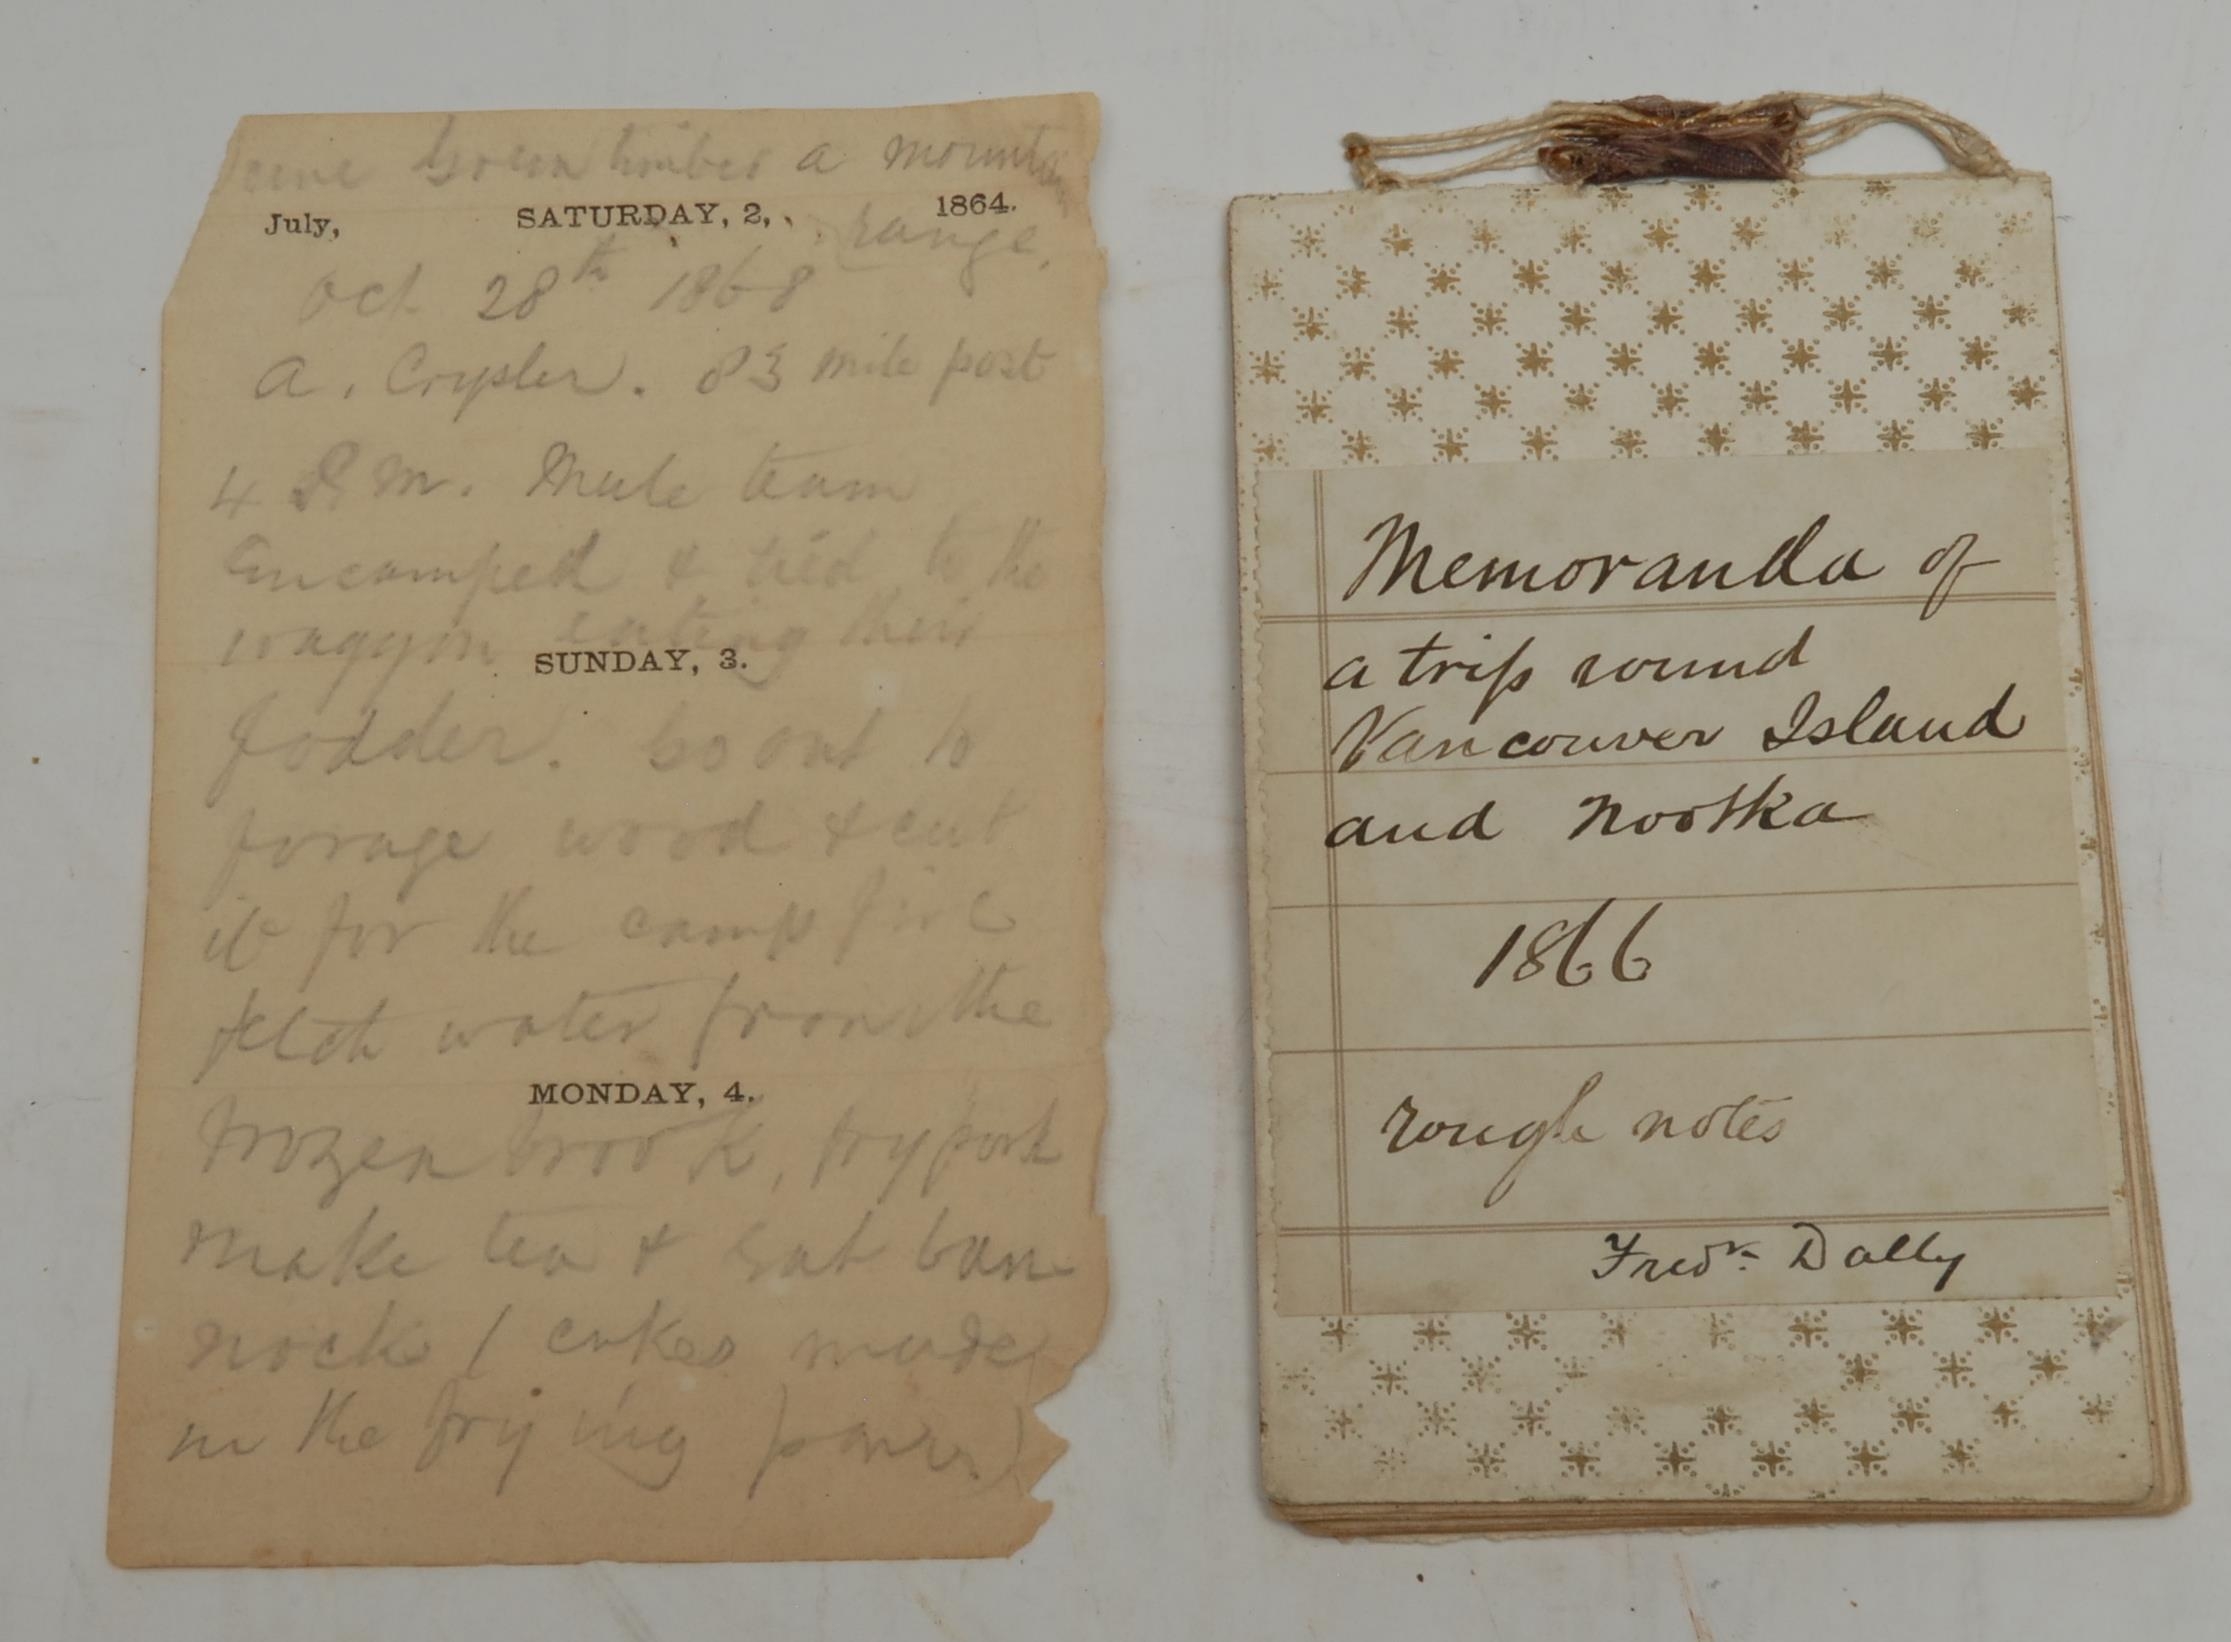 Green timber a mountain
July, SATURDAY, 2, 1864.
range.
Oct 28th 1868
A. Crysler. 83 mile post
4 P.M. Mule team
Encamped & tied to the
waggon eating their
SUNDAY, 3.
fodder. Go out to
forage wood & cut
it for the camp fire
fetch water from the
MONDAY, 4.
frozen brook, fry pork
make tea & eat ban
nock (cakes made
in the frying pan)
Memoranda of
a trip round
Vancouver Island
and Nootka
1866
rough notes
Fredk. Dally